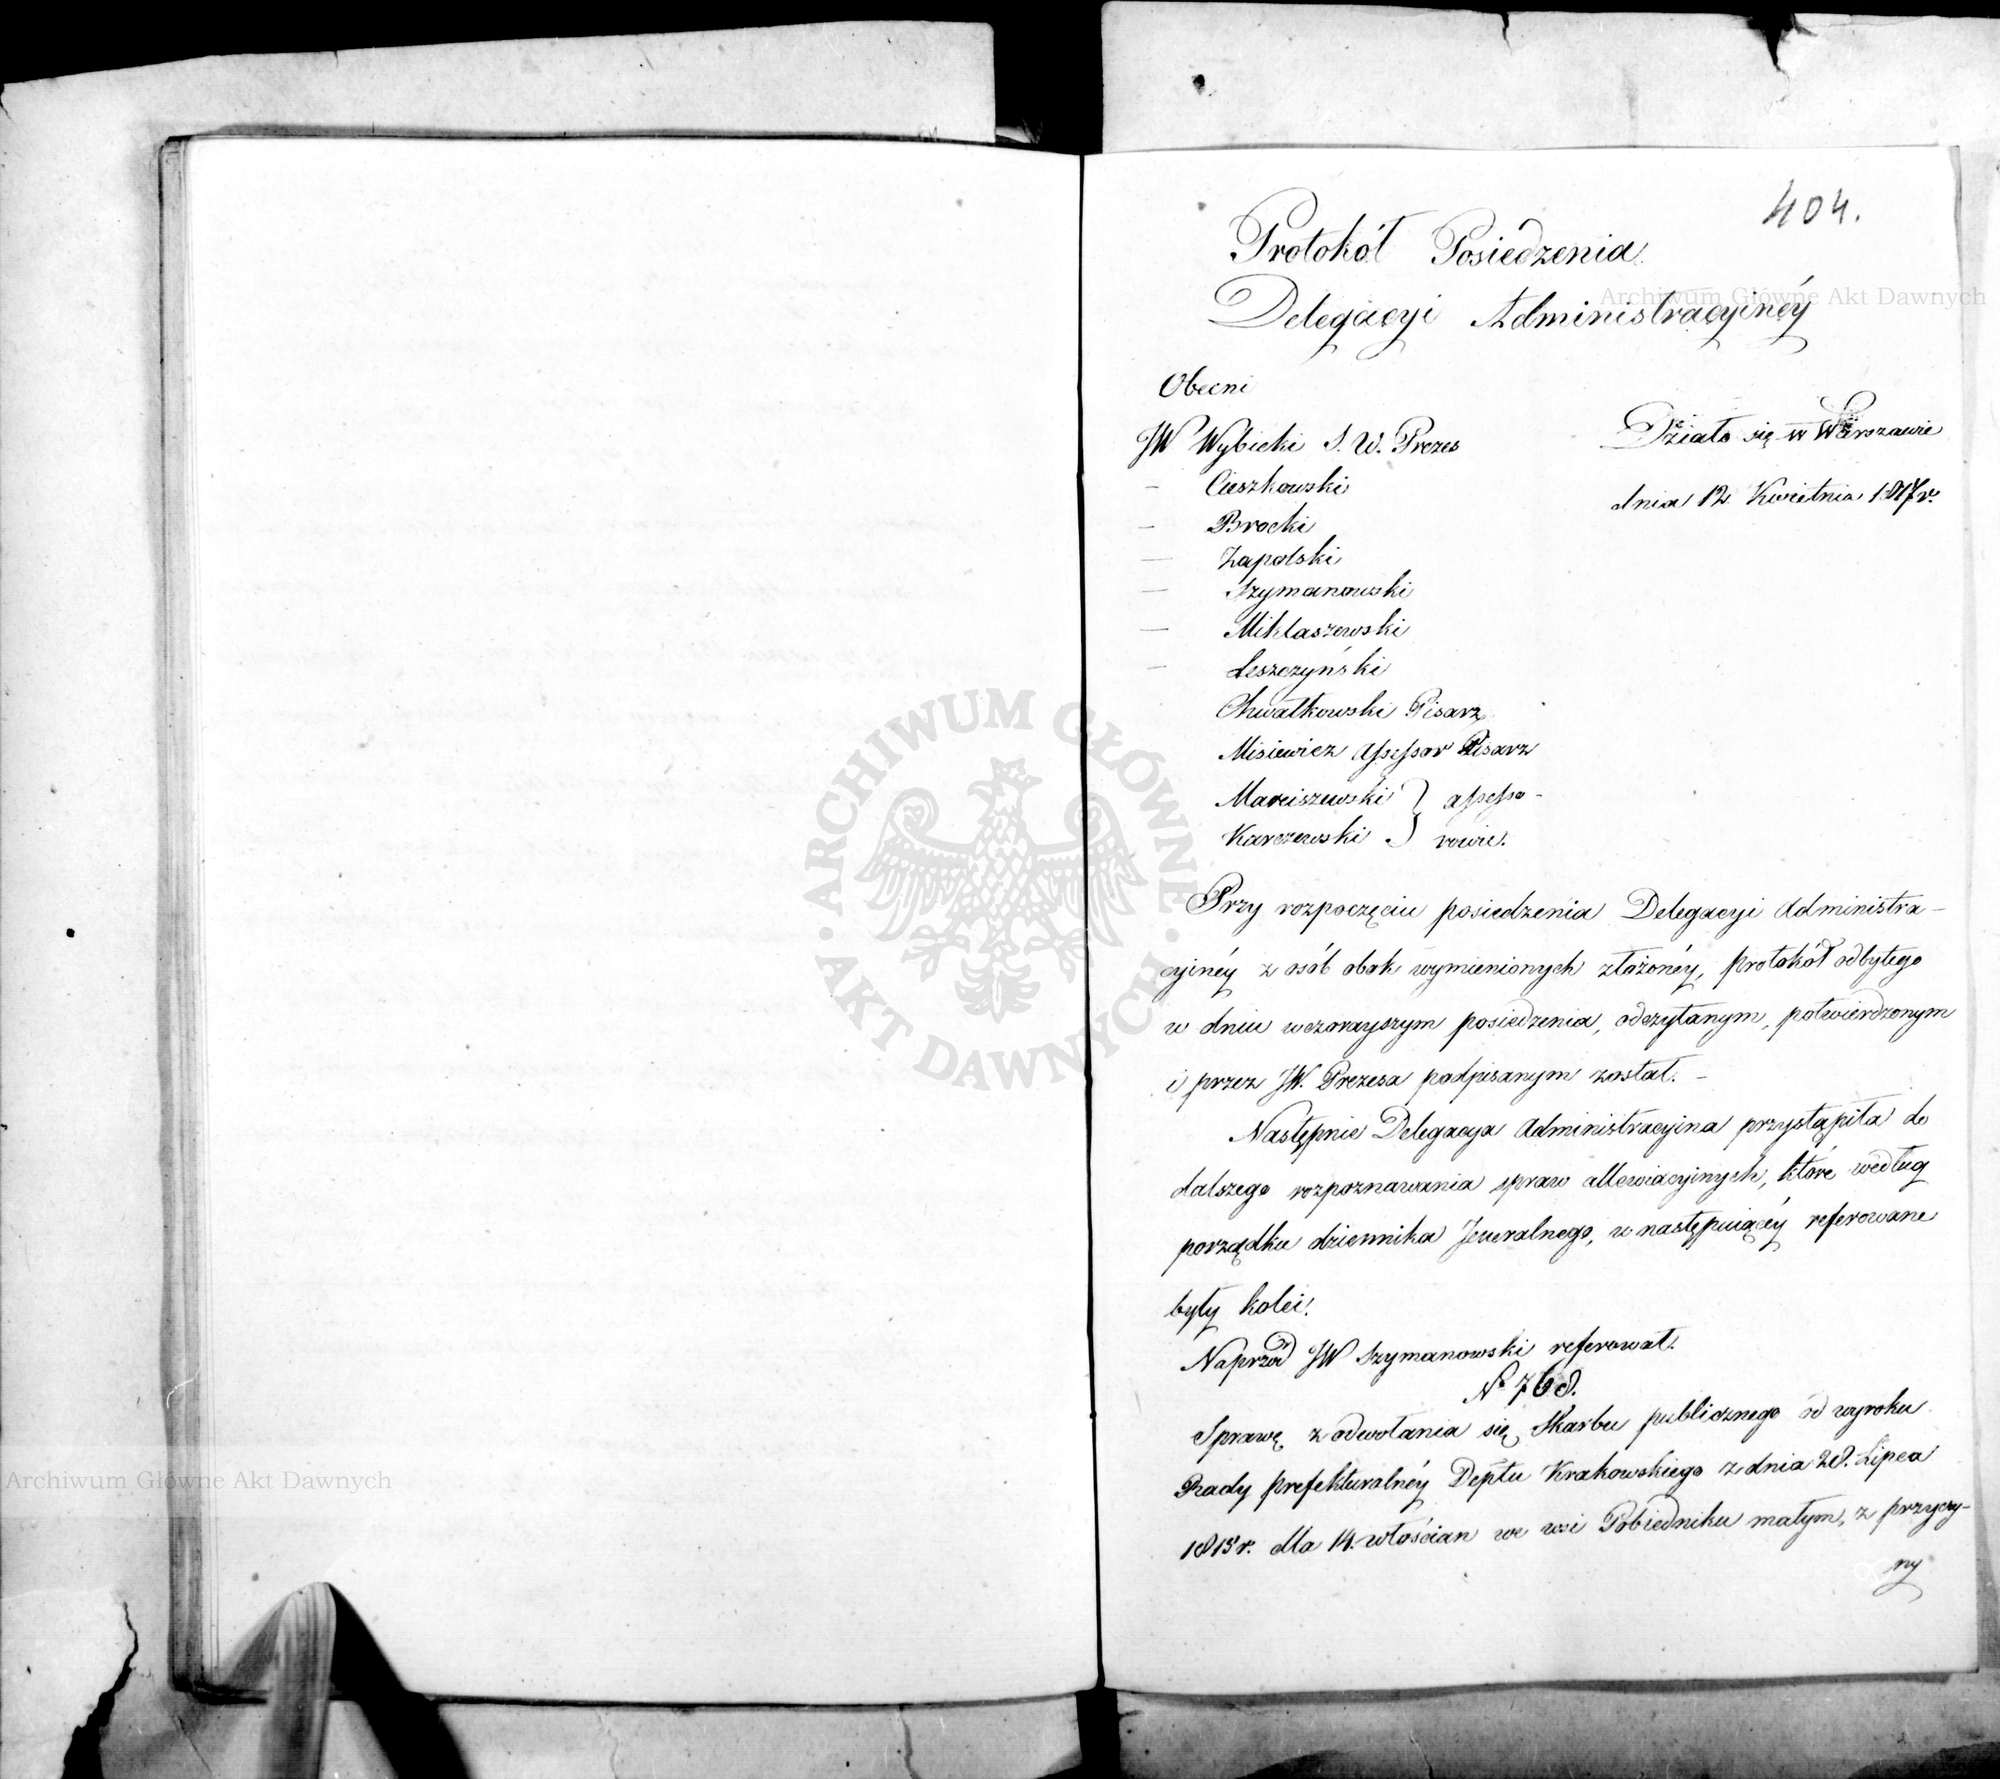 404.
Protokół Posiedzenia
Delegacyi Administracyinéy
Obecni
JW Wybicki S. W. Prezes
Działo się w Warszawie
dnia 12 Kwietnia 1817 r.
— Cieszkowski
— Brocki
— Zapolski
— Szymanowski
— Miklaszewski
— Leszczyński
Chwalkowski Pisarz
Misiewicz Assessor Pisarz
Marciszewski } assesso-
Karczewski } rowie.
Przy rozpoczęciu posiedzenia Delegacyi Administra-
cyinéy z osób obok wymienionych złożonéy, protokół odbytego
w dniu wczorayszym posiedzenia, odczytanym, potwierdzonym
i przez JW. Prezesa podpisanym został. –
Następnie Delegacya Administracyina przystąpiła do
dalszego rozpoznawania spraw allewiacyinych, które według
porządku dziennika Jeneralnego, w następuiącéy referowane
były kolei.
Naprzód JW Szymanowski referował.
No 768.
Sprawę z odwołania się Skarbu publicznego od wyroku
Rady prefekturalnéy Deptu Krakowskiego z dnia 28. Lipca
1815 r. dla 14. włościan we wsi Pobiedniku małym, z przyczy-
ny
Archiwum Główne Akt Dawnych
ARCHIWUM GŁÓWNE · AKT DAWNYCH ·
Archiwum Główne Akt Dawnych